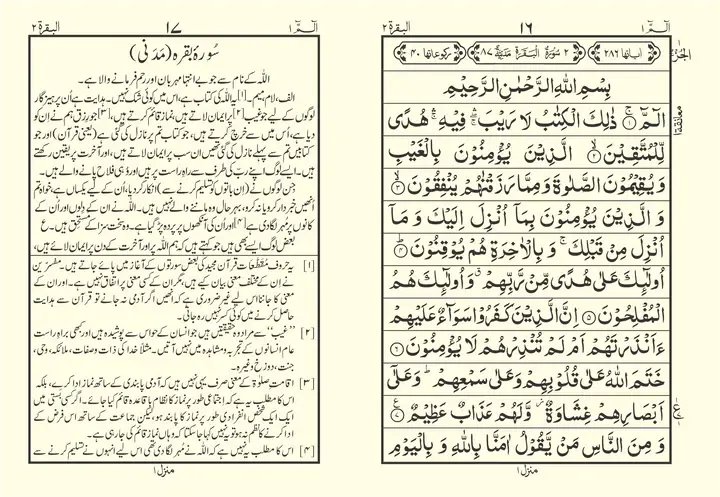 الٓمّٓ ١
١٦
البقرة ٢
اٰیاتها ٢٨٦
٢ سُوْرَةُ الْبَقَرَةِ مَدَنِیَّةٌ ٨٧
رکوعاتها ٤٠
الجزء
بِسْمِ اللّٰهِ الرَّحْمٰنِ الرَّحِیْمِ
الٓمّٓ ۚ﴿١﴾ ذٰلِكَ الْكِتٰبُ لَا رَیْبَ ۛۚ فِیْهِ ۛۚ هُدًی
لِّلْمُتَّقِیْنَ ۙ﴿٢﴾ الَّذِیْنَ یُؤْمِنُوْنَ بِالْغَیْبِ
وَ یُقِیْمُوْنَ الصَّلٰوةَ وَ مِمَّا رَزَقْنٰهُمْ یُنْفِقُوْنَ ۙ﴿٣﴾
وَ الَّذِیْنَ یُؤْمِنُوْنَ بِمَاۤ اُنْزِلَ اِلَیْكَ وَ مَاۤ
اُنْزِلَ مِنْ قَبْلِكَ ۚ وَ بِالْاٰخِرَةِ هُمْ یُوْقِنُوْنَ ؕ﴿٤﴾
اُولٰٓئِكَ عَلٰی هُدًی مِّنْ رَّبِّهِمْ ۗ وَ اُولٰٓئِكَ هُمُ
الْمُفْلِحُوْنَ ﴿٥﴾ اِنَّ الَّذِیْنَ كَفَرُوْا سَوَآءٌ عَلَیْهِمْ
ءَاَنْذَرْتَهُمْ اَمْ لَمْ تُنْذِرْهُمْ لَا یُؤْمِنُوْنَ ﴿٦﴾
خَتَمَ اللّٰهُ عَلٰی قُلُوْبِهِمْ وَ عَلٰی سَمْعِهِمْ ؕ وَ عَلٰۤی
اَبْصَارِهِمْ غِشَاوَةٌ ؗ وَّ لَهُمْ عَذَابٌ عَظِیْمٌ ﴿٧﴾
وَ مِنَ النَّاسِ مَنْ یَّقُوْلُ اٰمَنَّا بِاللّٰهِ وَ بِالْیَوْمِ
منزل ١
الٓمّٓ ١
١٧
البقرة ٢
سُورۂ بقرہ (مَدَنی)
اللہ کے نام سے جو بے انتہا مہربان اور رحم فرمانے والا ہے۔
الف، لام، میم۔[۱] یہ اللہ کی کتاب ہے، اس میں کوئی شک نہیں۔ ہدایت ہے اُن پرہیزگار
لوگوں کے لیے جو غیب[۲] پر ایمان لاتے ہیں، نماز قائم کرتے ہیں،[۳] جو رزق ہم نے اُن کو
دیا ہے، اُس میں سے خرچ کرتے ہیں، جو کتاب تم پر نازل کی گئی ہے (یعنی قرآن) اور جو
کتابیں تم سے پہلے نازل کی گئی تھیں ان سب پر ایمان لاتے ہیں، اور آخرت پر یقین رکھتے
ہیں۔ ایسے لوگ اپنے رب کی طرف سے راہِ راست پر ہیں اور وہی فلاح پانے والے ہیں۔
جِن لوگوں نے (اِن باتوں کو تسلیم کرنے سے) انکار کر دیا، اُن کے لیے یکساں ہے، خواہ تم
انھیں خبردار کرو یا نہ کرو، بہر حال وہ ماننے والے نہیں ہیں۔ اللہ نے ان کے دلوں اور اُن کے
کانوں پر مُہر لگا دی ہے[۴] اور اُن کی آنکھوں پر پردہ پڑ گیا ہے۔ وہ سخت سزا کے مستحق ہیں۔ ع
بعض لوگ ایسے بھی ہیں جو کہتے ہیں کہ ہم اللہ پر اور آخرت کے دن پر ایمان لائے ہیں،
[۱] یہ حروفِ مُقَطَّعات قرآن مجید کی بعض سورتوں کے آغاز میں پائے جاتے ہیں۔ مفسّرین
نے ان کے مختلف معنی بیان کیے ہیں، مگر ان کے کسی معنی پر اتفاق نہیں ہے۔ اور ان کے
معنی کا جاننا اس لیے غیر ضروری ہے کہ انھیں اگر آدمی نہ جانے تو قرآن سے ہدایت
حاصل کرنے میں کوئی کسر نہیں رہ جاتی۔
[۲] ”غیب“ سے مراد وہ حقیقتیں ہیں جو انسان کے حواس سے پوشیدہ ہیں اور کبھی براہِ راست
عام انسانوں کے تجربہ و مشاہدہ میں نہیں آتیں۔ مثلاً خدا کی ذات و صفات، ملائکہ، وحی،
جنت، دوزخ وغیرہ۔
[۳] اقامتِ صلوٰۃ کے معنی صرف یہی نہیں ہیں کہ آدمی پابندی کے ساتھ نماز ادا کرے، بلکہ
اس کا مطلب یہ ہے کہ اجتماعی طور پر نماز کا نظام باقاعدہ قائم کیا جائے۔ اگر کسی بستی میں
ایک ایک شخص انفرادی طور پر نماز کا پابند ہو، لیکن جماعت کے ساتھ اس فرض کے
ادا کرنے کا نظم نہ ہو تو یہ نہیں کہا جا سکتا کہ وہاں نماز قائم کی جا رہی ہے۔
[۴] اس کا مطلب یہ نہیں ہے کہ اللہ نے مُہر لگا دی تھی اس لیے انہوں نے تسلیم کرنے سے
منزل ١